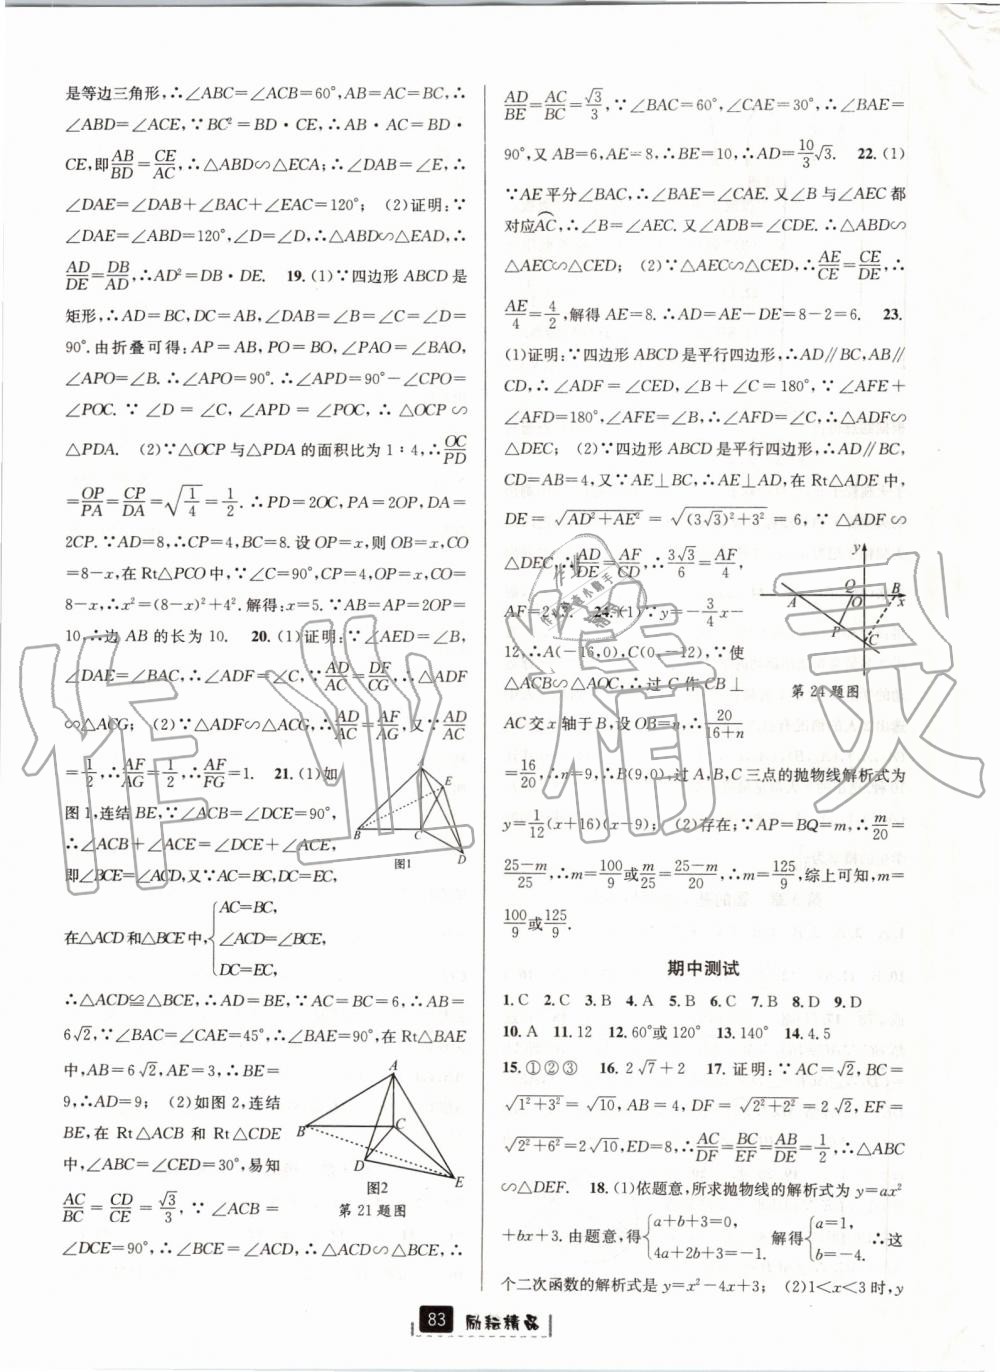 是等边三角形,∴∠ABC=∠ACB=60°,AB=AC=BC,∴
∠ABD=∠ACE,∵BC²=BD·CE,∴AB·AC=BD·
CE,即AB/BD=CE/AC,∴△ABD∽△ECA;∴∠DAB=∠E,∴
∠DAE=∠DAB+∠BAC+∠EAC=120°; (2)证明:∵
∠DAE=∠ABD=120°,∠D=∠D,∴△ABD∽△EAD,∴
AD/DE=DB/AD,∴AD²=DB·DE. 19.(1)∵四边形ABCD是
矩形,∴AD=BC,DC=AB,∠DAB=∠B=∠C=∠D=
90°.由折叠可得:AP=AB,PO=BO,∠PAO=∠BAO,
∠APO=∠B.∴∠APO=90°.∴∠APD=90°-∠CPO=
∠POC. ∵∠D=∠C,∠APD=∠POC,∴△OCP∽
△PDA. (2)∵△OCP与△PDA的面积比为1∶4,∴OC/PD
=OP/PA=CP/DA=√(1/4)=1/2.∴PD=2OC,PA=2OP,DA=
2CP.∵AD=8,∴CP=4,BC=8.设OP=x,则OB=x,CO
=8-x,在Rt△PCO中,∵∠C=90°,CP=4,OP=x,CO=
8-x,∴x²=(8-x)²+4².解得:x=5.∴AB=AP=2OP=
10,∴边AB的长为10. 20.(1)证明:∵∠AED=∠B,
∠DAE=∠BAC,∴∠ADF=∠C,∵AD/AC=DF/CG,∴△ADF
∽△ACG; (2)∵△ADF∽△ACG,∴AD/AC=AF/AG,又∵AD/AC
=1/2,∴AF/AG=1/2,∴AF/FG=1. 21.(1)如
图1,连结BE,∵∠ACB=∠DCE=90°,
∴∠ACB+∠ACE=∠DCE+∠ACE,
即∠BCE=∠ACD,又∵AC=BC,DC=EC,
A
E
B
C
D
图1
在△ACD和△BCE中,{AC=BC,
∠ACD=∠BCE,
DC=EC,
∴△ACD≌△BCE,∴AD=BE,∵AC=BC=6,∴AB=
6√2,∵∠BAC=∠CAE=45°,∴∠BAE=90°,在Rt△BAE
中,AB=6√2,AE=3,∴BE=
9,∴AD=9; (2)如图2,连结
BE,在Rt△ACB和Rt△CDE
中,∠ABC=∠CED=30°,易知
AC/BC=CD/CE=√3/3,∵∠ACB=
∠DCE=90°,∴∠BCE=∠ACD,∴△ACD∽△BCE,∴
A
B
C
D
E
图2
第21题图
AD/BE=AC/BC=√3/3,∵∠BAC=60°,∠CAE=30°,∴∠BAE=
90°,又AB=6,AE=8,∴BE=10,∴AD=10/3√3. 22.(1)
∵AE平分∠BAC,∴∠BAE=∠CAE.又∠B与∠AEC都
对应⌒AC,∴∠B=∠AEC.又∠ADB=∠CDE.∴△ABD∽
△AEC∽△CED; (2)∵△AEC∽△CED,∴AE/CE=CE/DE,∴
AE/4=4/2,解得AE=8.∴AD=AE-DE=8-2=6. 23.
(1)证明:∵四边形ABCD是平行四边形,∴AD∥BC,AB∥
CD,∴∠ADF=∠CED,∠B+∠C=180°,∵∠AFE+
∠AFD=180°,∠AFE=∠B,∴∠AFD=∠C,∴△ADF∽
△DEC; (2)∵四边形ABCD是平行四边形,∴AD∥BC,
CD=AB=4,又∵AE⊥BC,∴AE⊥AD,在Rt△ADE中,
DE=√(AD²+AE²)=√((3√3)²+3²)=6,∵△ADF∽
△DEC,∴AD/DE=AF/CD,∴3√3/6=AF/4,
AF=2√3. 24.(1)∵y=-3/4x-
12,∴A(-16,0),C(0,-12),∵使
△ACB∽△AOC,∴过C作CB⊥
AC交x轴于B,设OB=n,∴20/(16+n)
=16/20,∴n=9,∴B(9,0),过A,B,C三点的抛物线解析式为
y=1/12(x+16)(x-9); (2)存在;∵AP=BQ=m,∴m/20=
(25-m)/25,∴m=100/9或m/25=(25-m)/20,∴m=125/9,综上可知,m=
100/9或125/9.
y
Q
B
A
O
x
P
C
第24题图
期中测试
1.C 2.C 3.B 4.A 5.B 6.C 7.B 8.D 9.D
10.A 11.12 12.60°或120° 13.140° 14.4.5
15.①②③ 16.2√7+2 17.证明:∵AC=√2,BC=
√(1²+3²)=√10,AB=4,DF=√(2²+2²)=2√2,EF=
√(2²+6²)=2√10,ED=8,∴AC/DF=BC/EF=AB/DE=1/2,∴△ABC
∽△DEF. 18.(1)依题意,所求抛物线的解析式为y=ax²
+bx+3.由题意,得{a+b+3=0, 4a+2b+3=-1. 解得{a=1, b=-4. ∴这
个二次函数的解析式是y=x²-4x+3; (2)1<x<3时,y
83 励耘精品
作业精灵